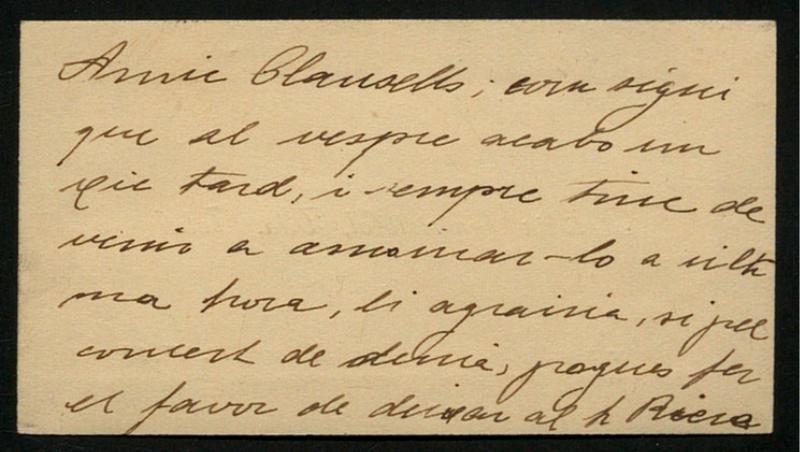 Amic Clausells; com sigui
que al vespre acabo un
xic tard, i sempre tinc de
venir a amoinar-lo a ulti
ma hora, li agrairia, si pel
concert de demà, pogues fer
el favor de deixar al h Riera